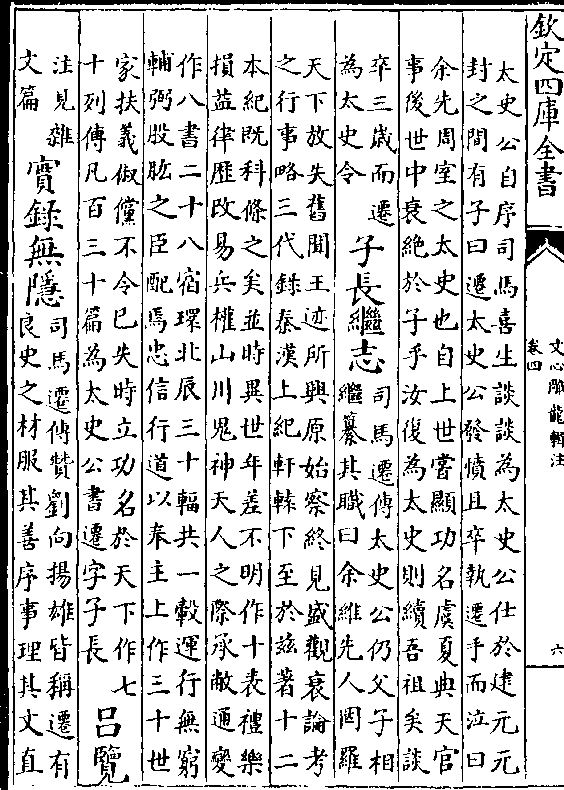 欽定四庫全書
文心雕龍輯注
卷四
六
太史公自序司馬喜生談談為太史公仕於建元元
封之間有子曰遷太史公發憤且卒執遷手而泣曰
余先周室之太史也自上世嘗顯功名虞夏典天官
事後世中衰絶於子乎汝復為太史則續吾祖矣談
卒三歲而遷
為太史令
子長繼志
司馬遷傳太史公仍父子相
繼纂其職曰余維先人罔羅
天下放失舊聞王迹所興原始察終見盛觀衰論考
之行事略三代錄秦漢上紀軒轅下至於兹著十二
本紀既科條之矣並時異世年差不明作十表禮樂
損益律歷改易兵權山川鬼神天人之際承敝通變
作八書二十八宿環北辰三十輻共一轂運行無窮
輔弼股肱之臣配焉忠信行道以奉主上作三十世
家扶義俶儻不令已失時立功名於天下作七
十列傳凡百三十篇為太史公書遷字子長
呂覽
注見雜
文篇
實錄無隱
司馬遷傳贊劉向揚雄皆稱遷有
良史之材服其善序事理其文直